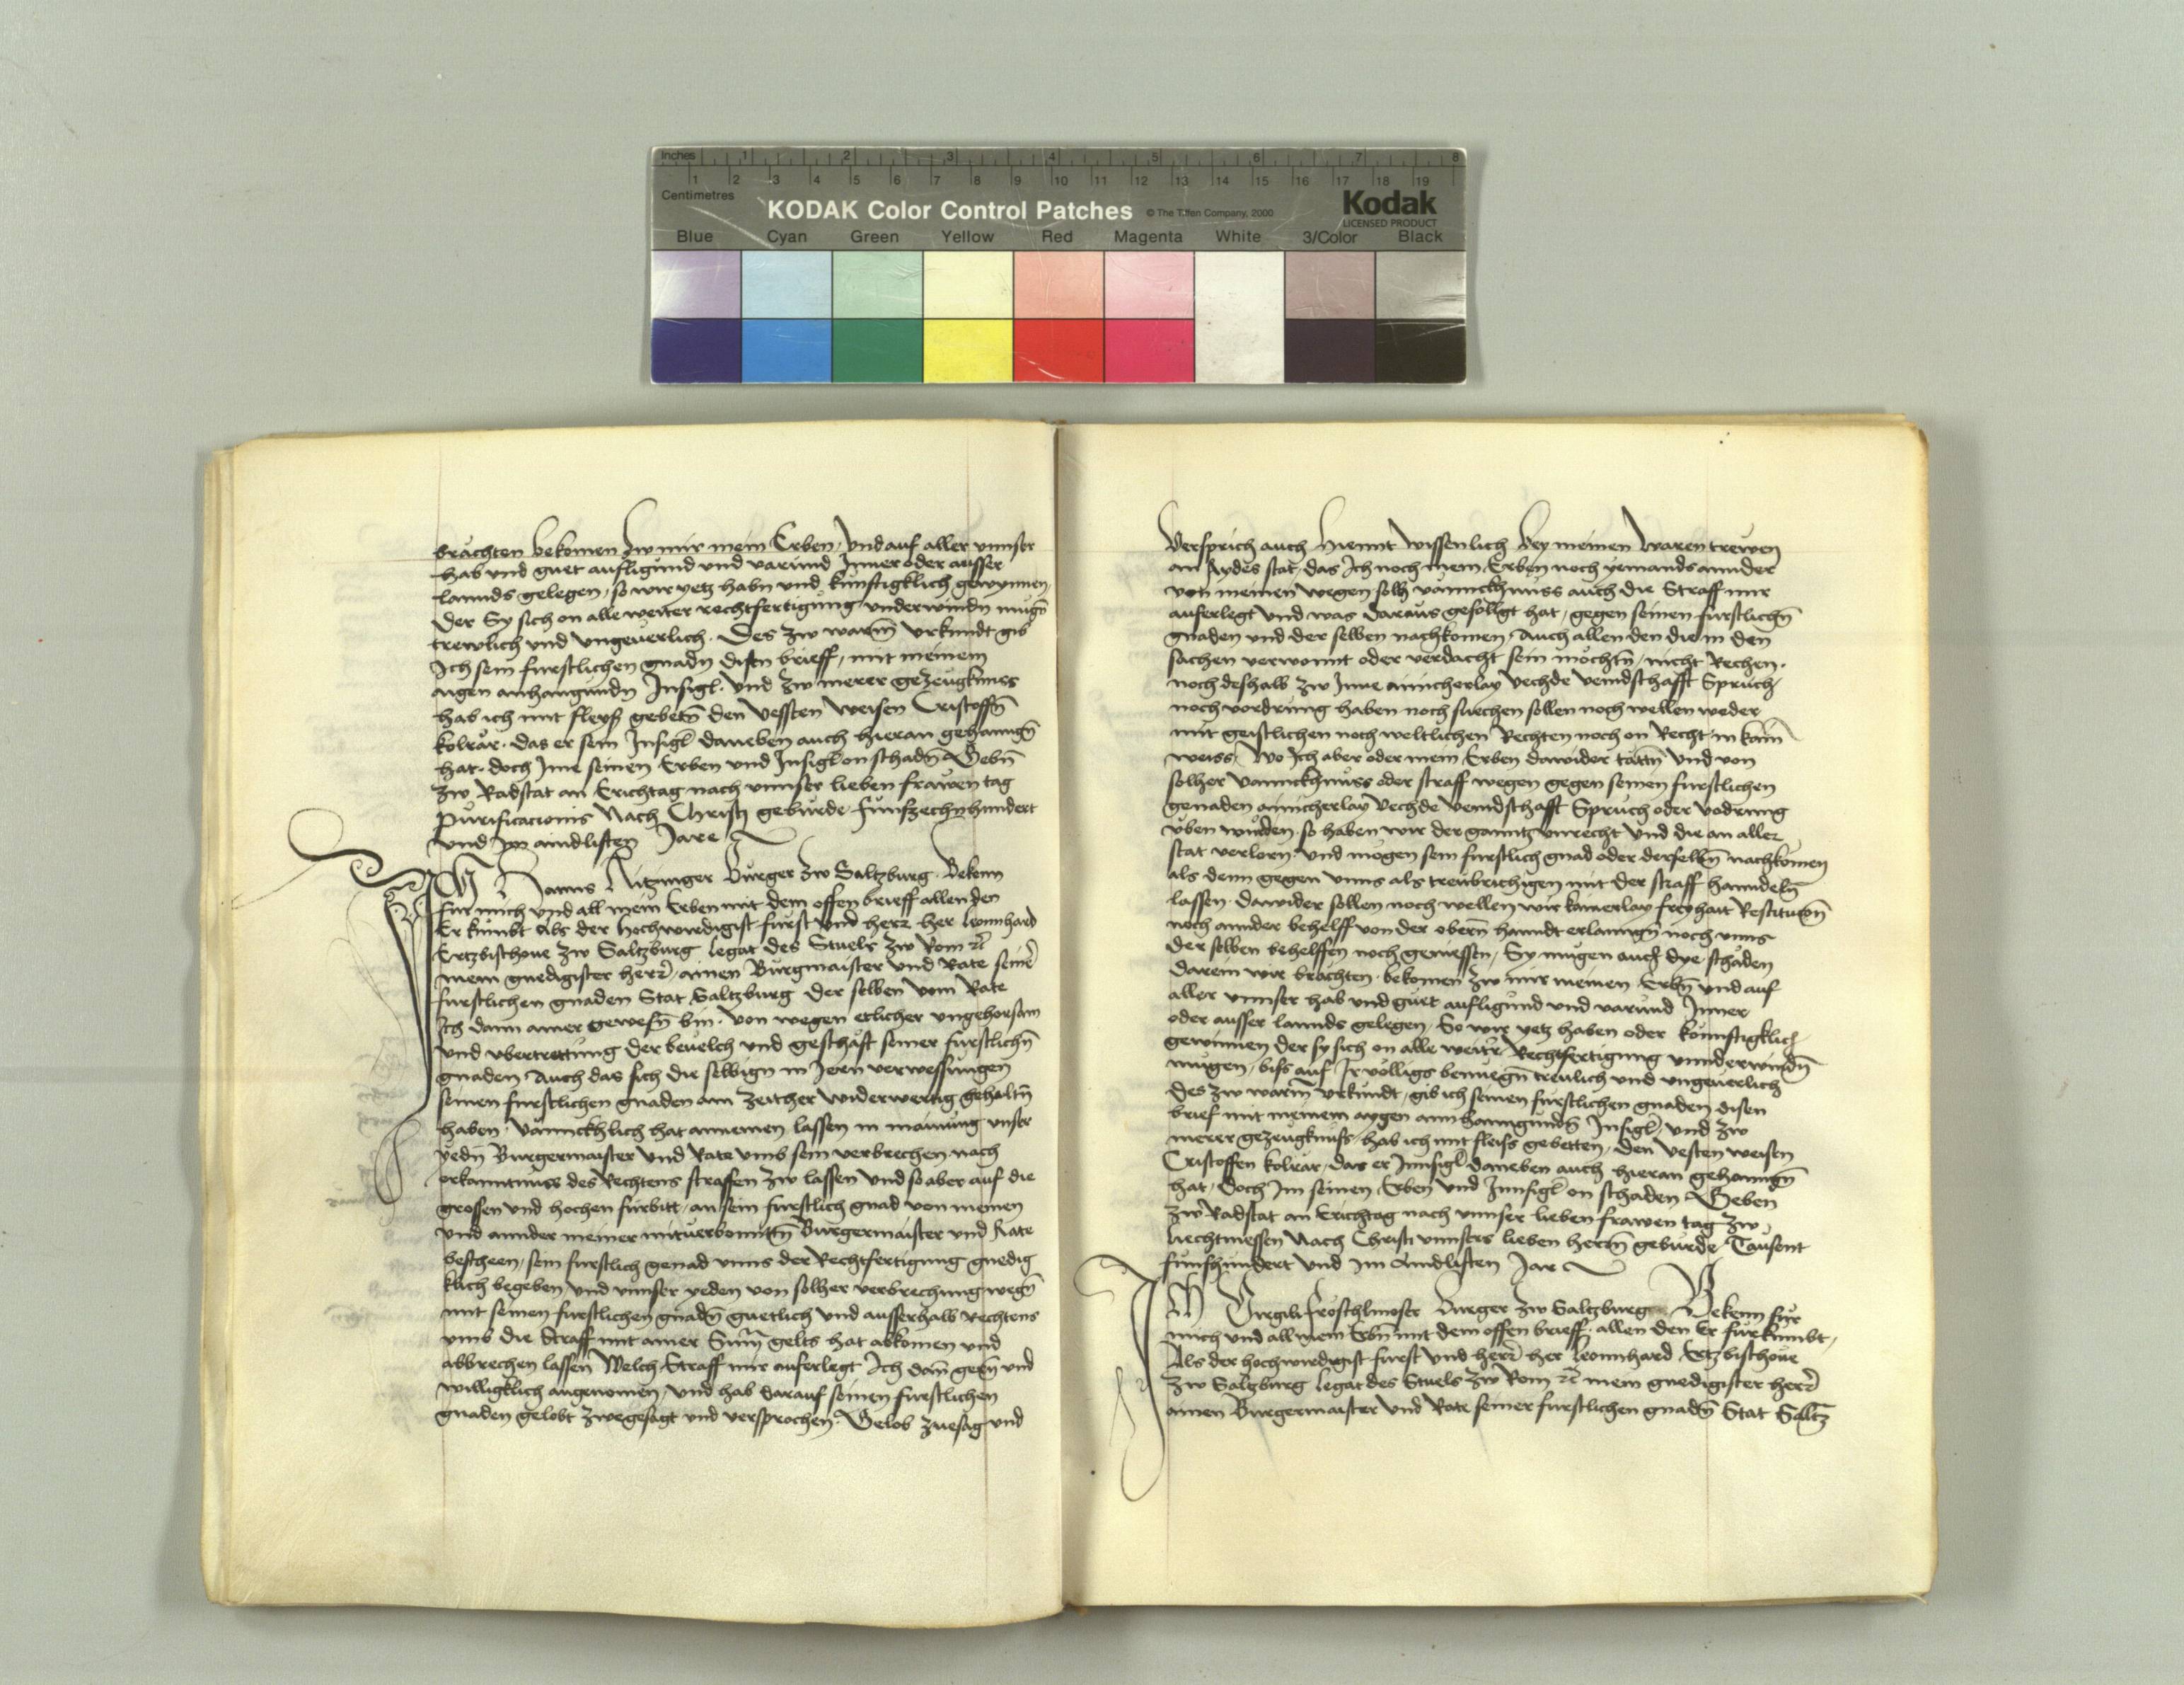 Inches 1 2 3 4 5 6 7 8
Centimetres 1 2 3 4 5 6 7 8 9 10 11 12 13 14 15 16 17 18 19
KODAK Color Control Patches © The Tiffen Company, 2000 Kodak
LICENSED PRODUCT
Blue Cyan Green Yellow Red Magenta White 3/Color Black
brachten bekomen Zw mir mein Erben, Und auf aller unnser
hab und guet aufligund und varund Inner oder ausser
lannds gelegen, so wir yetz habn und kunftigklich gewynnen,
Der Sy sich on alle weiter rechtfertigung underwindn mugn̄
trewlich und Ungeuerlich. Des zw warm̄ Urkundt gib
Ich sein furstlichen gnadn disen brieff, mit meinem
aigen anhangundn Insigl. Und zw merer gezeugknuss
hab ich mit fleyß gebetn̄ den Vessten Weisen Cristoffn̄
kolrär. das er sein Insigl daneben auch hieran gehanngn̄
hat. doch Ime seinen Erben und Insigl on schadn̄ Gebn̄
Zw Radstat an Erichtag nach unnser lieben frawen tag
Purificacionis Nach Christj geburde funfzechnhundert
und Im aindlisten Jare
ICh Hanns Ritzinger Burger zw Saltzburg. Bekenn
fur mich und all mein Erben mit dem offen brieff allen den
Er kumbt Als der Hochwirdigist furst Und herr her Leonnhard
Ertzbischove zw Saltzburg Legat des Stuels zw Rom ꝛc̄
mein gnedigister herr, ainen Burgmaister und Rate seinr̄
furstlichen gnaden Stat Saltzburg Der selben vom Rate
Ich dann ainer gewesn̄ bin. von wegen etlicher ungehorsam
und ubertrettung der beuelch und geschäft seiner furstlichn̄
gnaden Auch das sich die selbign in Iren verwessungen
seinen furstlichen gnaden am zeither widerwertig gehaltn̄
haben. Vannckhlich hat annemen lassen in mainung unser
yedn̄ Burgermaister Und Rate umb sein verbrechen nach
erkanntnuss des Rechtens straffen zw lassen Und so aber auf die
grossen und hochen furbitt, an sein furstlich gnad von meinen
und annder meiner mituerwonnten Burgermaister und Rate
bescheen, sein furstlich genad unns der Rechtfertigung gnedig
klich begeben und unnser yeden von solher verbrechung wegn̄
mit seinen furstlichen gnadn̄ guetlich und ausserhalb Rechtens
umb die Straff mit ainer Sum̄ gelts hat abkomen und
abbrechen lassen Welch Straff mir auferlegt Ich dan̄ gern̄ und
willigklich angenomen, und hab darauf seinen furstlichen
gnaden gelobt zwegesagt und versprochen Gelob zuesag und
Versprich auch Hiemit Wissenlich Bey meinen Waren trewen
an Aydes stat, das Ich noch mein Erben noch yemands annder
von meinen wegen solh vannckhnuss auch die Straff mir
auferlegt Und was daraus gefollgt hat, gegen seinen furstlichn̄
gnaden und der selben nachkomen, Auch allen den die in den
sachen verwonnt oder verdacht sein mochtn̄, nicht Rechen.
noch deshalb zw Inne ainicherlay Vechde Veindschafft Spruch
noch vordrung haben noch suechen sollen noch wellen weder
mit geistlichen noch weltlichen Rechten noch on Recht in kain
weiss. Wo Ich aber oder mein Erben dawider tättn̄ Und von
solher Vannckhnuss oder straff wegen gegen seinen furstlichen
genaden ainicherlay Vechde Veindschafft Spruch oder Vodrung
uben wurden. so haben wir der ganntz unrecht Und die an aller
stat verlorn. und mogen sein furstlich gnad oder derselbn̄ nachkomen
als denn gegen unns als trewbrichigen mit der straff hanndeln̄
lassen. dawider sollen noch wellen wir kainerlay freyhait Restitucon̄
noch annder behelff von der obern̄ hanndt erlanngn̄ noch unns
der selben behelffen noch geniessen, Sy mugen auch dye schaden
darein wir brachten. bekomen zw mir meinen Erbn̄ und auf
aller unnser hab und guet aufligund und varund Inner
oder ausser lannds gelegen, So wir yetz haben oder kunnftigklich
gewinnen der sy sich on alle weitr̄ Rechtfertigung unnderwindn̄
mugen, biss auf Ir volligs benuegn̄ treulich und ungeuerlich
Des zw warm̄ Urkundt, gib ich seinen furstlichen gnaden disen
brief mit meinem aygen annhanngundn̄ Insigl, und zw
merer gezeugknuss, hab ich mit fleiss gebetten, den Vesten weisen
Cristoffen kolrär, das er Innsigl daneben auch hieran gehanngn̄
hat, doch Im seinen Erben Und Innsigl on schaden Geben
zw Radstat an Erichtag nach unnser lieben frawen tag zw
liechtmessen Nach Christi unnsers lieben herrn̄ geburde Tausent
funfhundert und im Aindlisten Jar
ICh Virgili Froschlmoser Burger zw Saltzburg Bekenn fur
mich und all mein Erbn̄ mit dem offen brieff, allen den Er furkumbt,
Als der hochwirdigist furst und herr her Leonnhard Ertzbischove
zw Saltzburg Legat des Stuels zw Rom ꝛc̄ mein gnedigister herr
ainen Burgermaister Und Rate seiner furstlichen gnadn̄ Stat Saltz